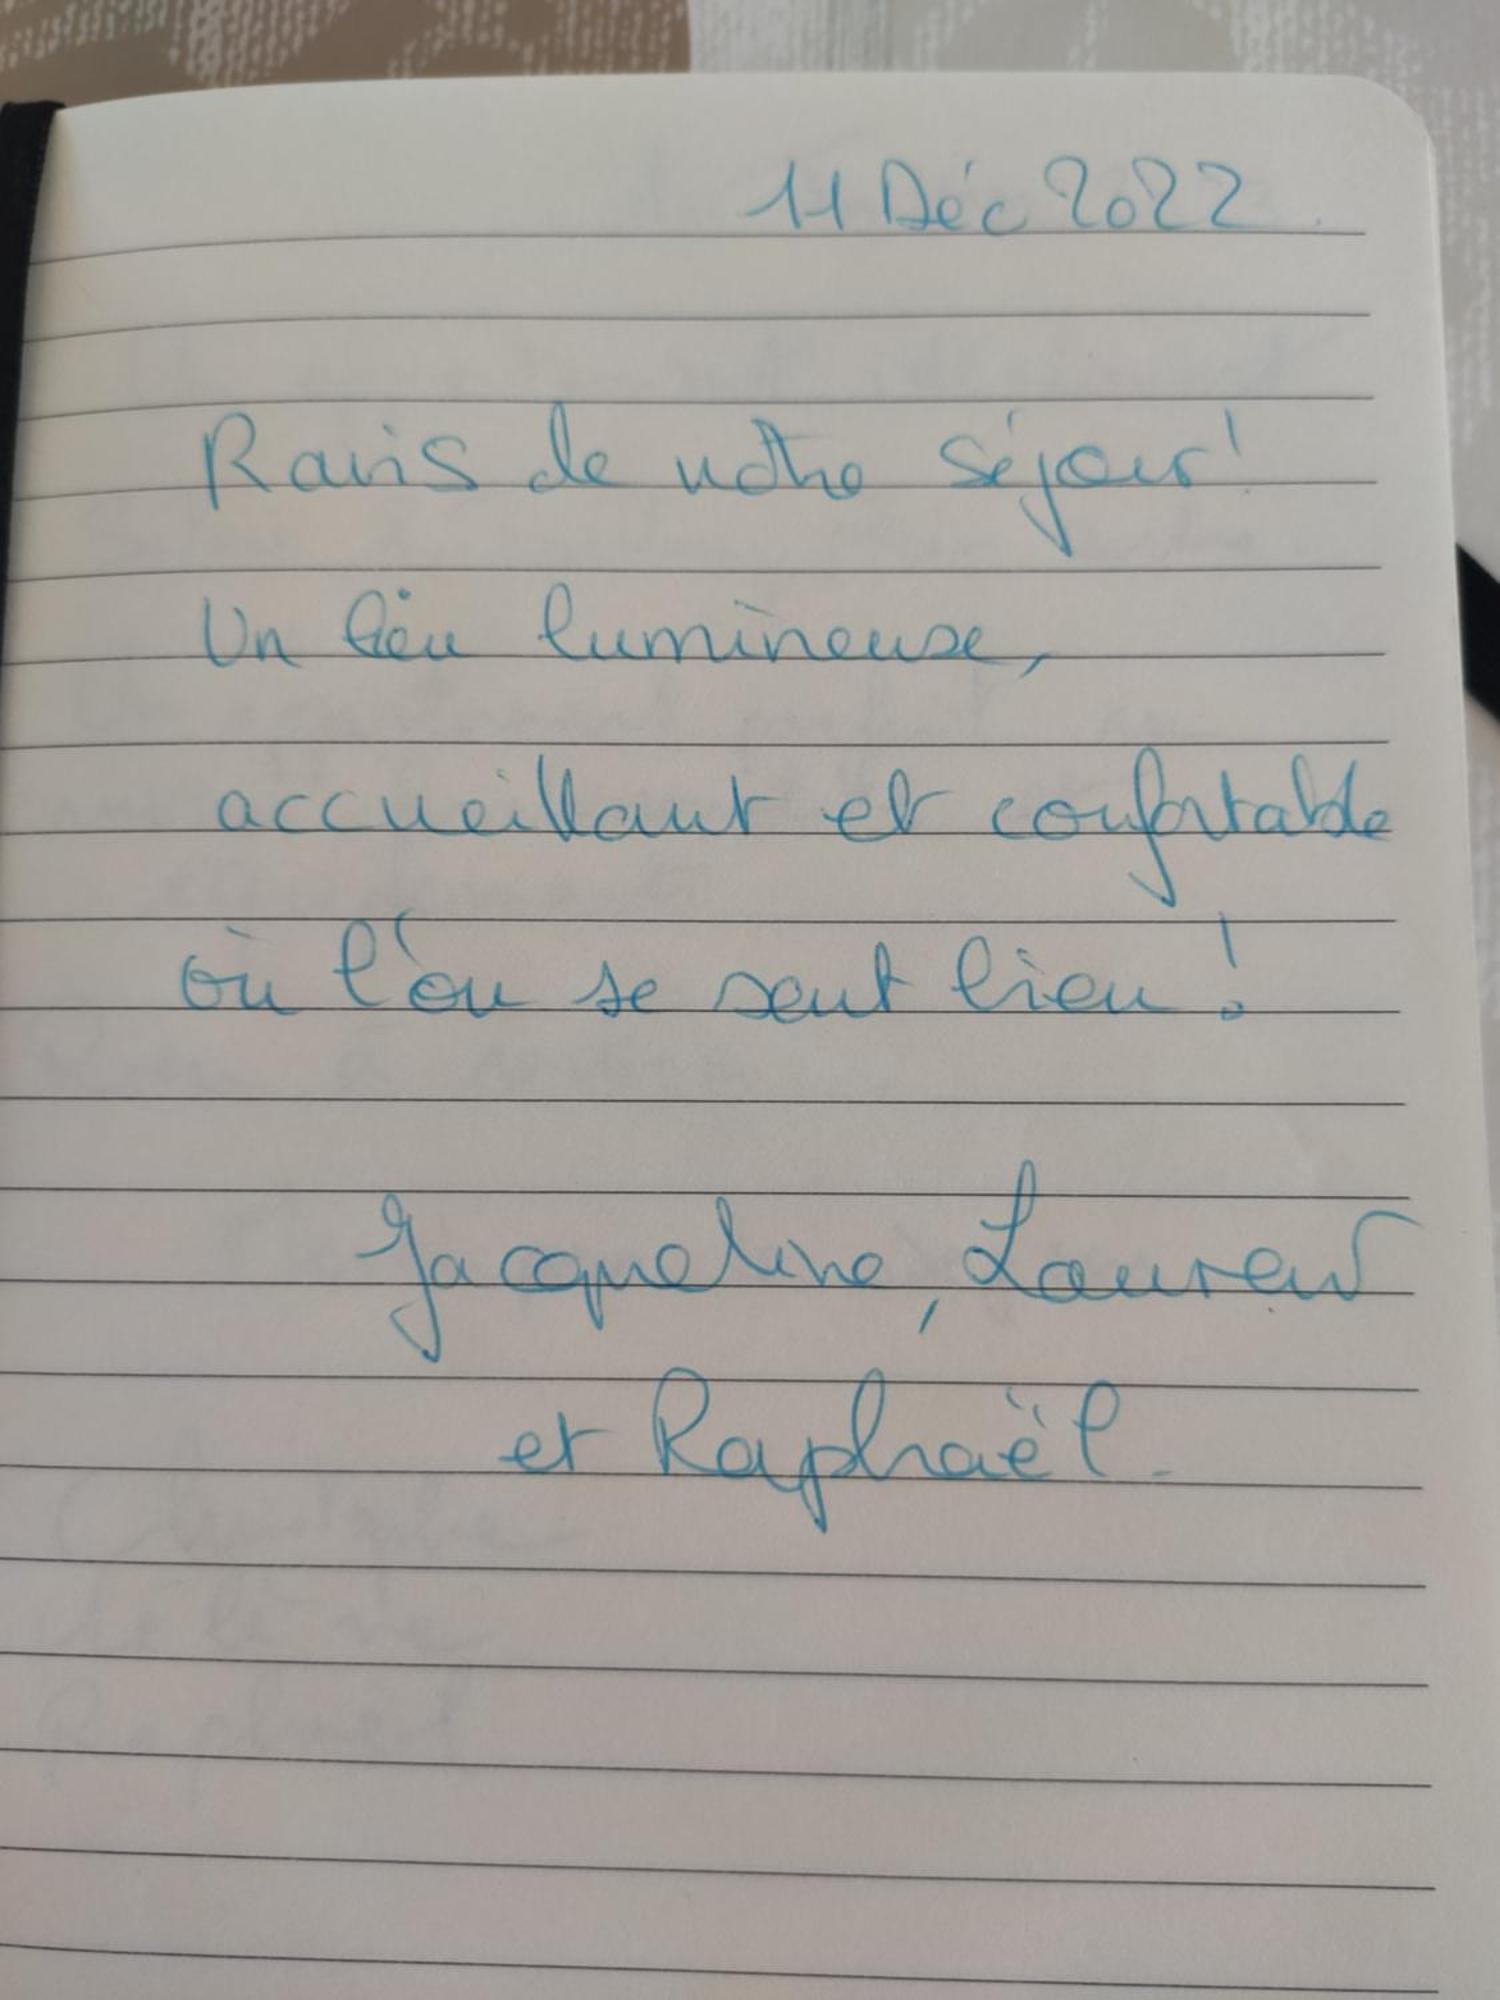 11 Déc 2022
Ravis de notre séjour!
Un lieu lumineuse,
accueillant et confortable
où l'on se sent bien !
Jacqueline, Laurent
et Raphaël.